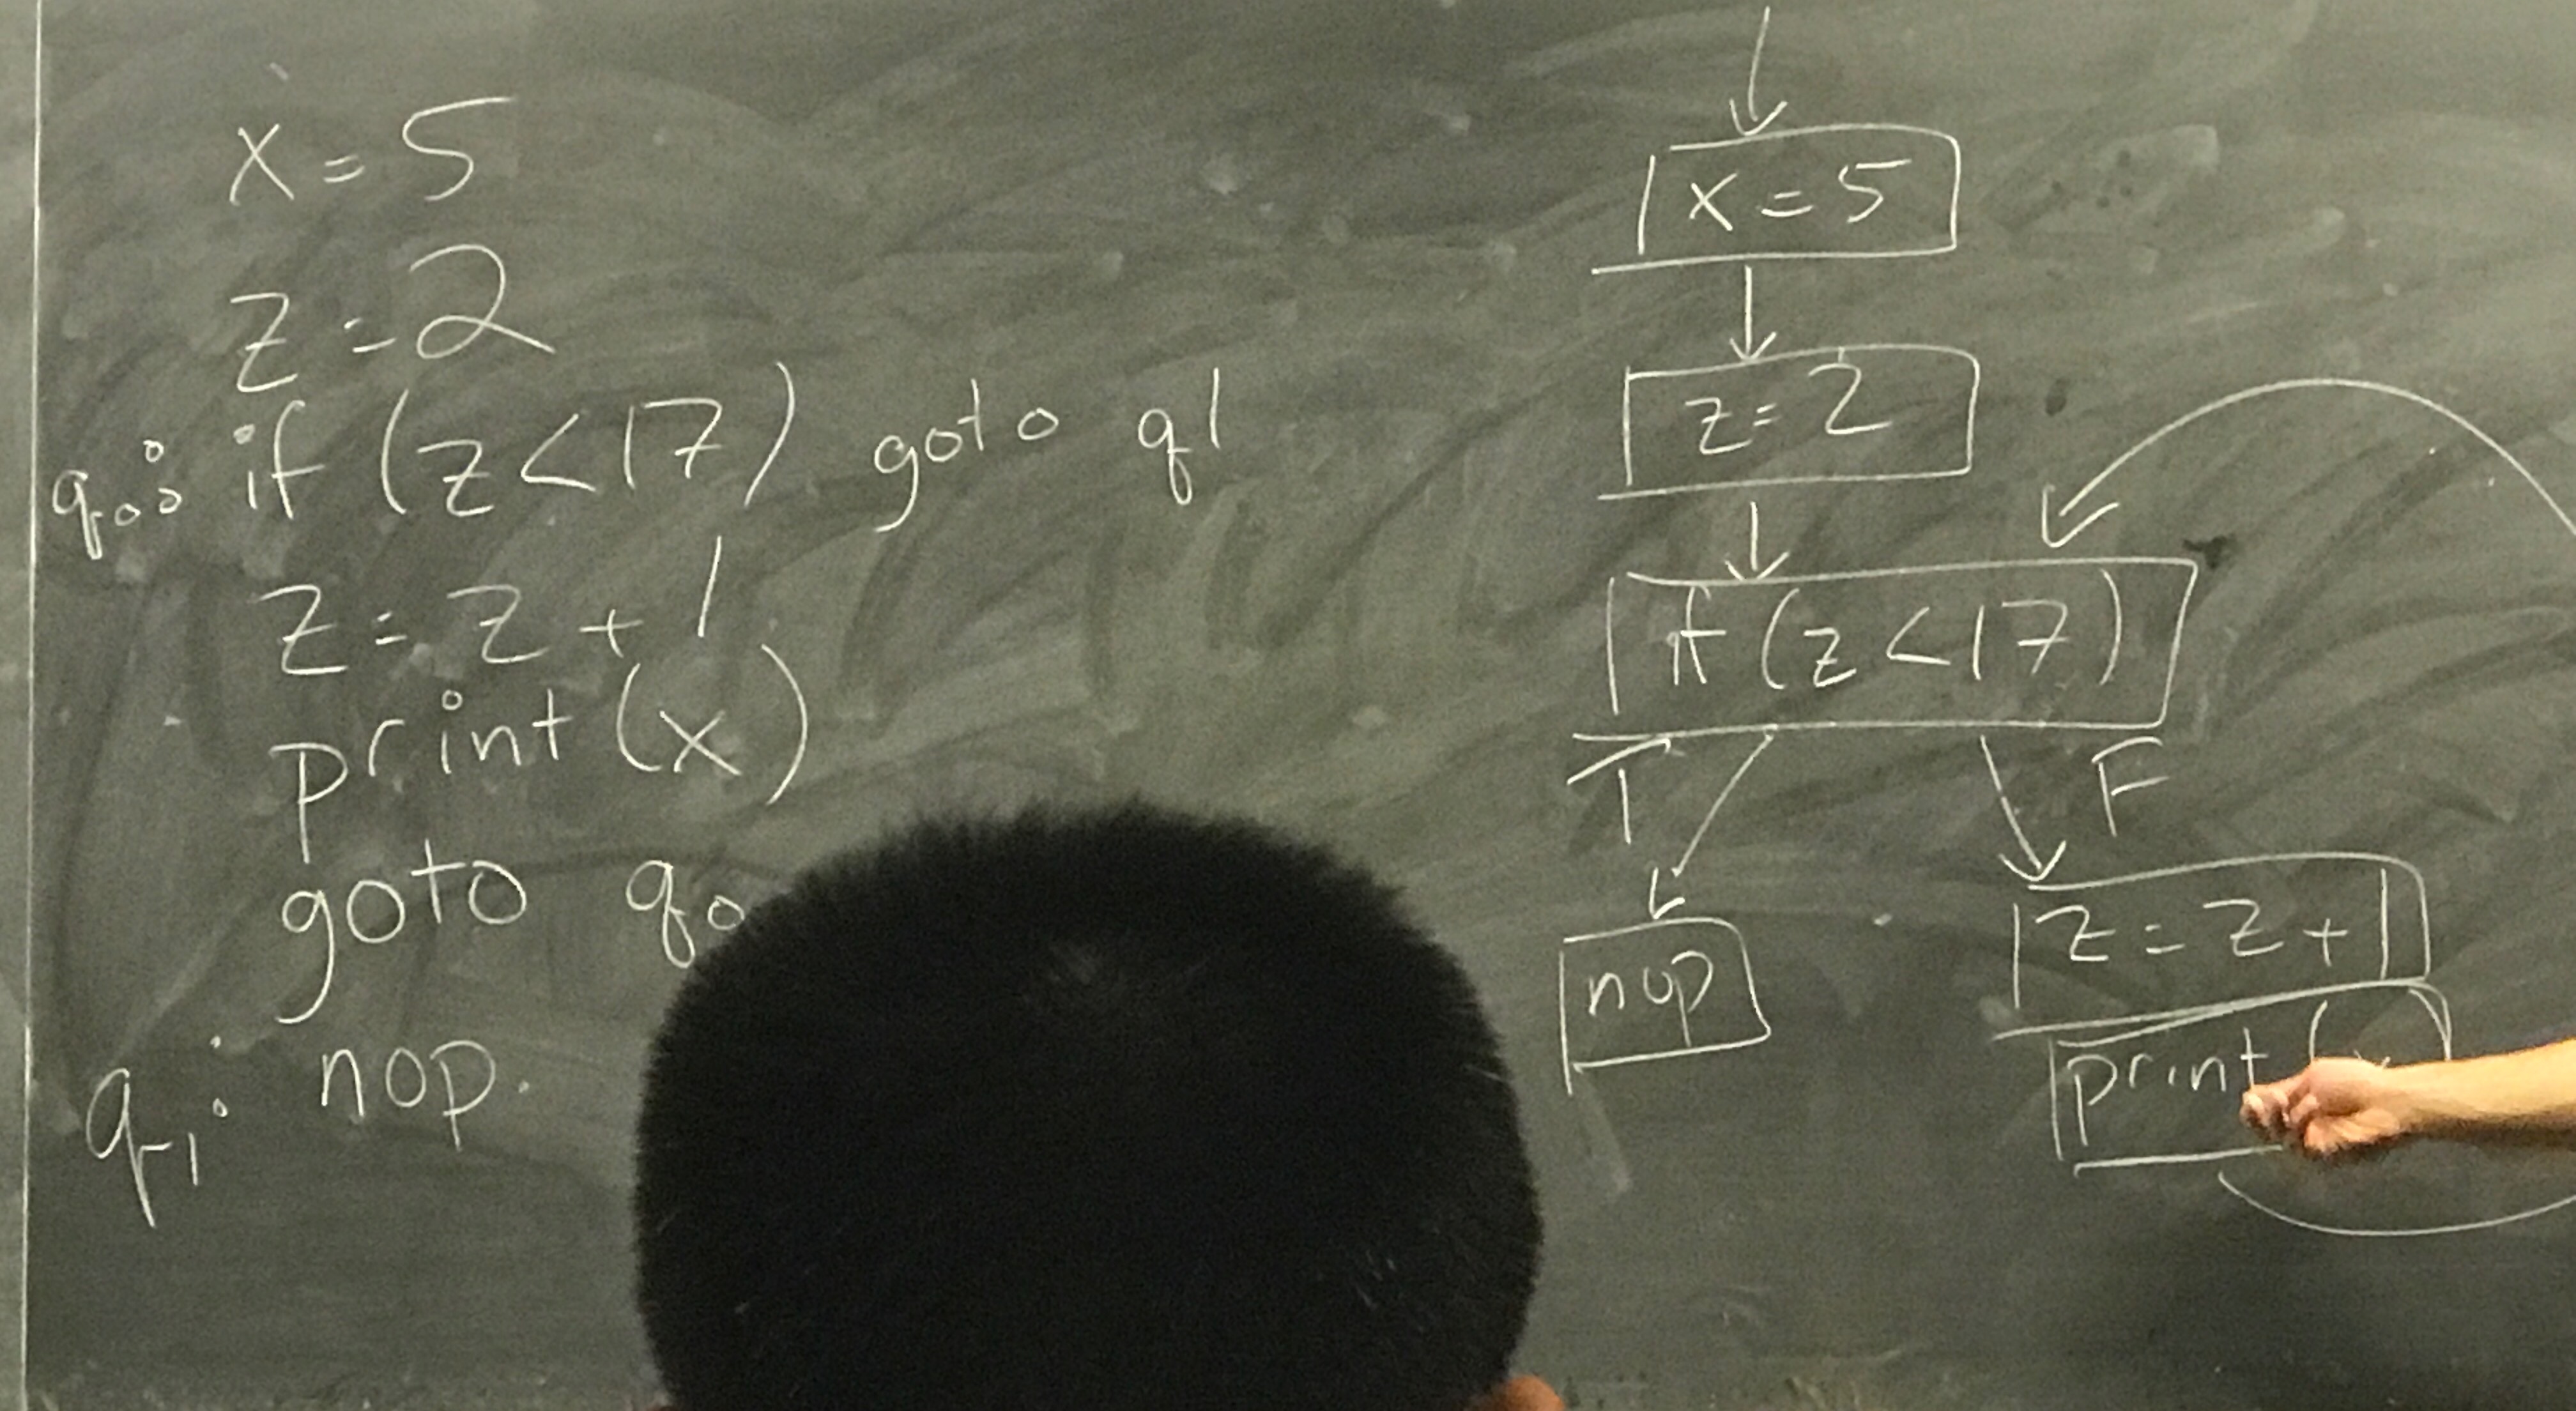 x = 5
z = 2
q0: if (z < 17) goto q1
z = z + 1
print(x)
goto q0
q1: nop.
x = 5
z = 2
if (z < 17)
T F
nop
z = z + 1
print(